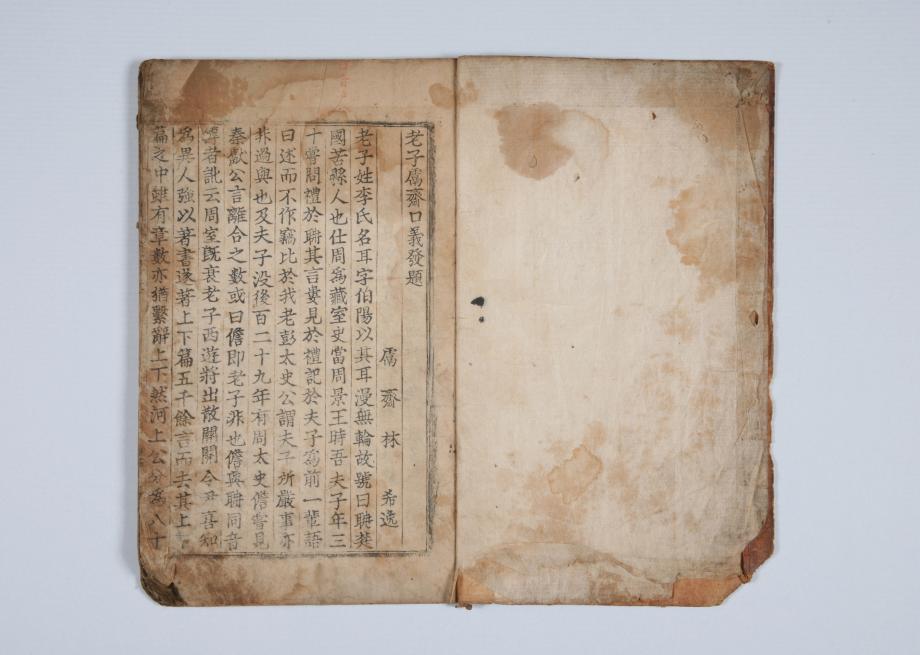 老子鬳齋口義發題
鬳齋林希逸
老子姓李氏名耳字伯陽以其耳漫無輪故號曰聃楚
國苦縣人也仕周爲藏室史當周景王時吾夫子年三
十嘗問禮於聃其言屢見於禮記於夫子爲前一輩語
曰述而不作竊比於我老彭太史公謂夫子所嚴事亦
非過與也及夫子没後百二十九年有周太史儋嘗見
秦獻公言離合之數或曰儋即老子非也儋與聃同音
傳者訛云周室旣衰老子西遊將出散關關令尹喜知
爲異人強以著書遂著上下篇五千餘言而去其上
篇之中雖有章數亦猶繫辭上下然河上公分爲八十